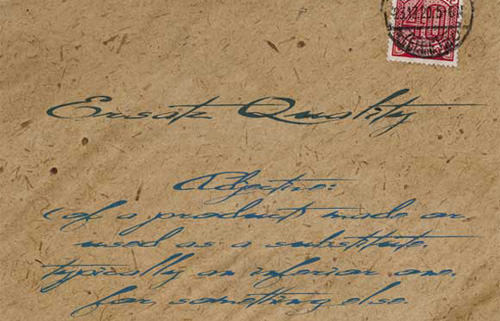 40
Ersatz Quality
Adjective:
(of a product) made or
used as a substitute,
typically an inferior one,
for something else.